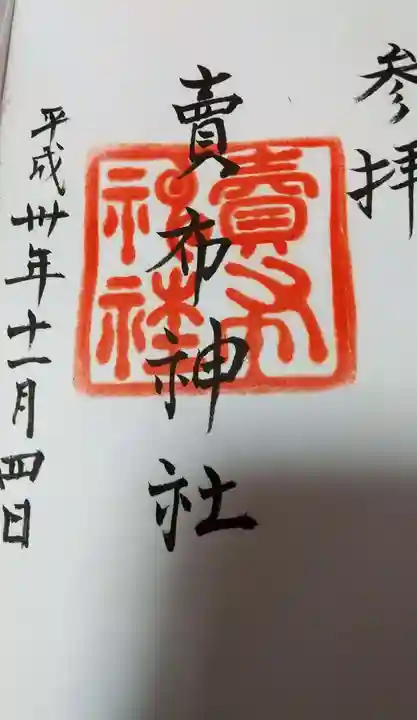 参拝
賣布神社
賣布神社
平成卅年十一月四日